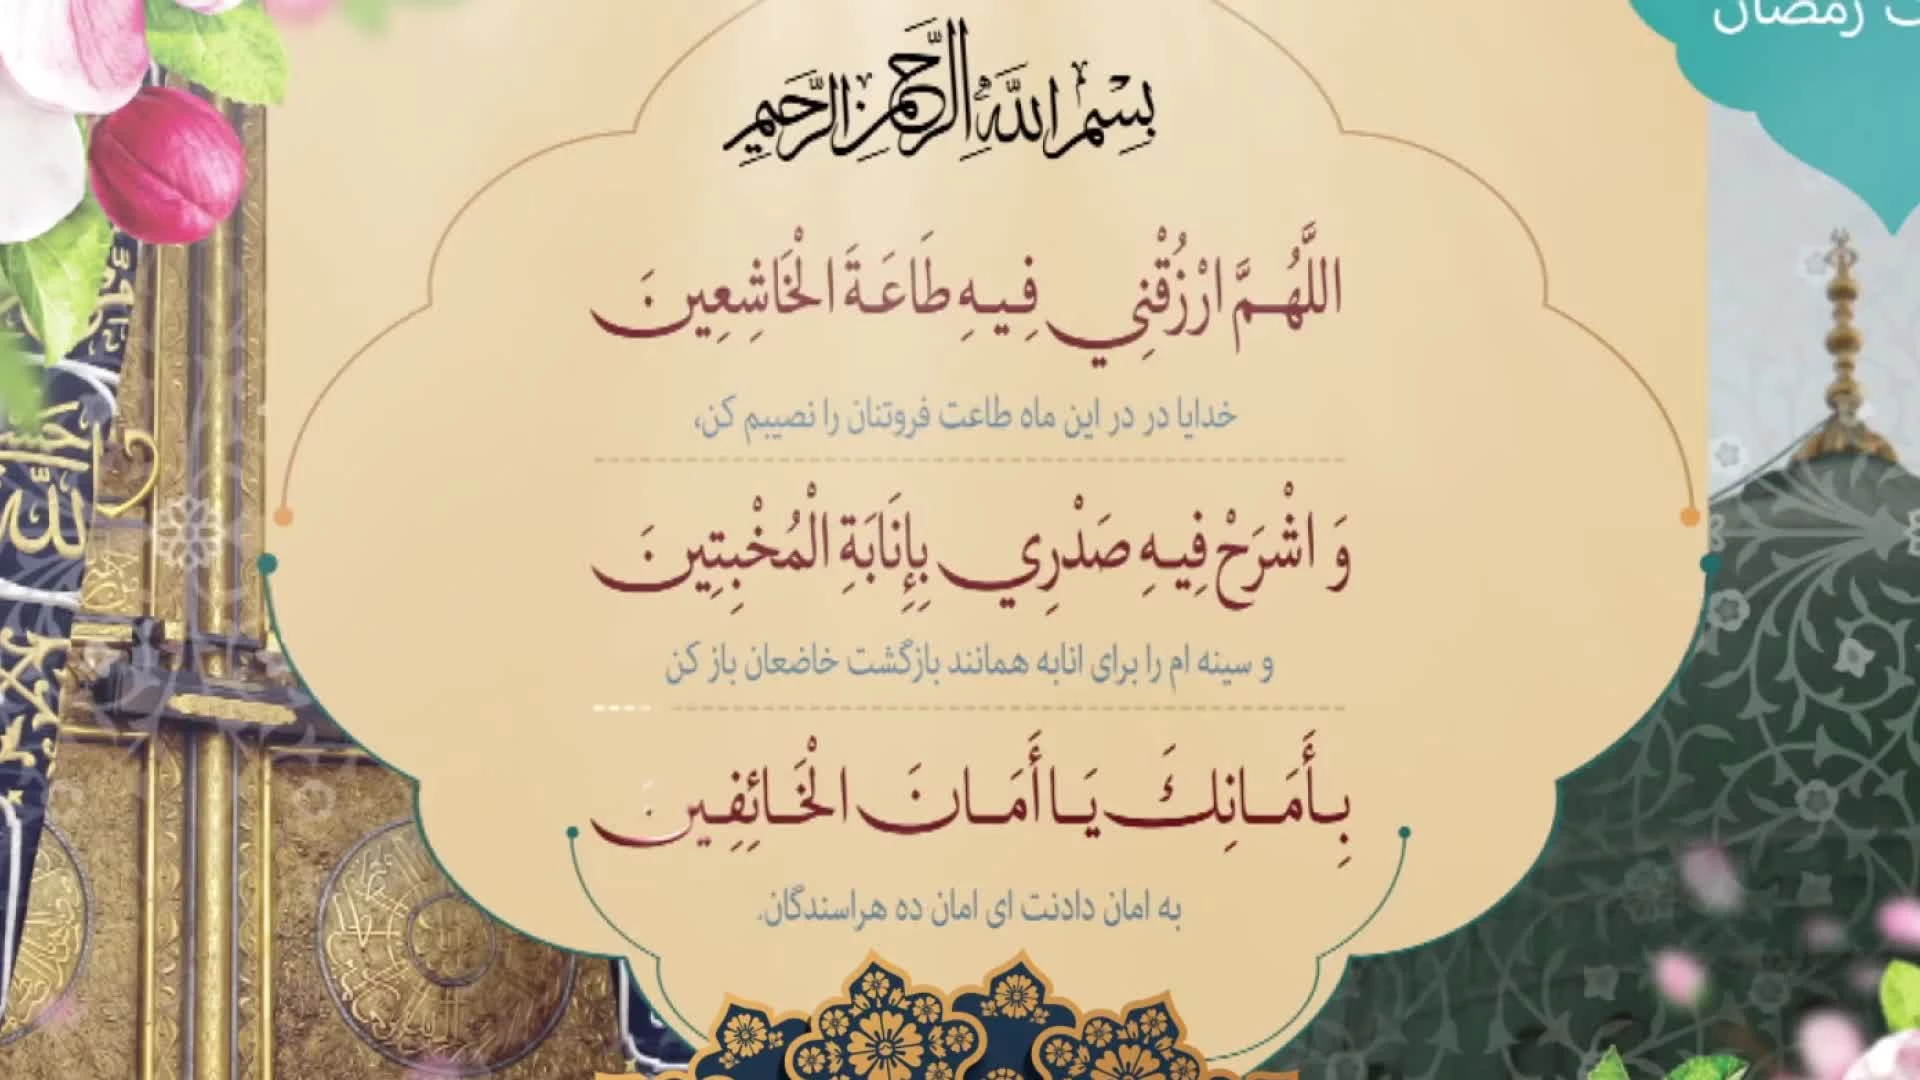 رمضان
بِسْمِ اللَّهِ الرَّحْمَنِ الرَّحِيمِ
اللَّهُمَّ ارْزُقْنِي فِيهِ طَاعَةَ الْخَاشِعِينَ
خدایا در در این ماه طاعت فروتنان را نصیبم کن،
وَ اشْرَحْ فِيهِ صَدْرِي بِإِنَابَةِ الْمُخْبِتِينَ
و سینه ام را برای انابه همانند بازگشت خاضعان باز کن
بِأَمَانِكَ يَا أَمَانَ الْخَائِفِينَ
به امان دادنت ای امان ده هراسندگان.